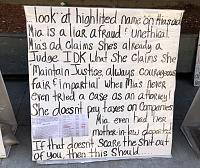 look at highlited name on Mias ad
Mia is a liar afraid & unethical.
Mias ad claims She's already a
Judge IDK what She claims She
Maintain Justice, always courageous
Fair & impartial when Mias never
even tried a case as an attorney!
She doesnt pay taxes on Companies
Mia even had her
mother-in-law deported!
If that doesnt scare the Shit out
of you then this Should.